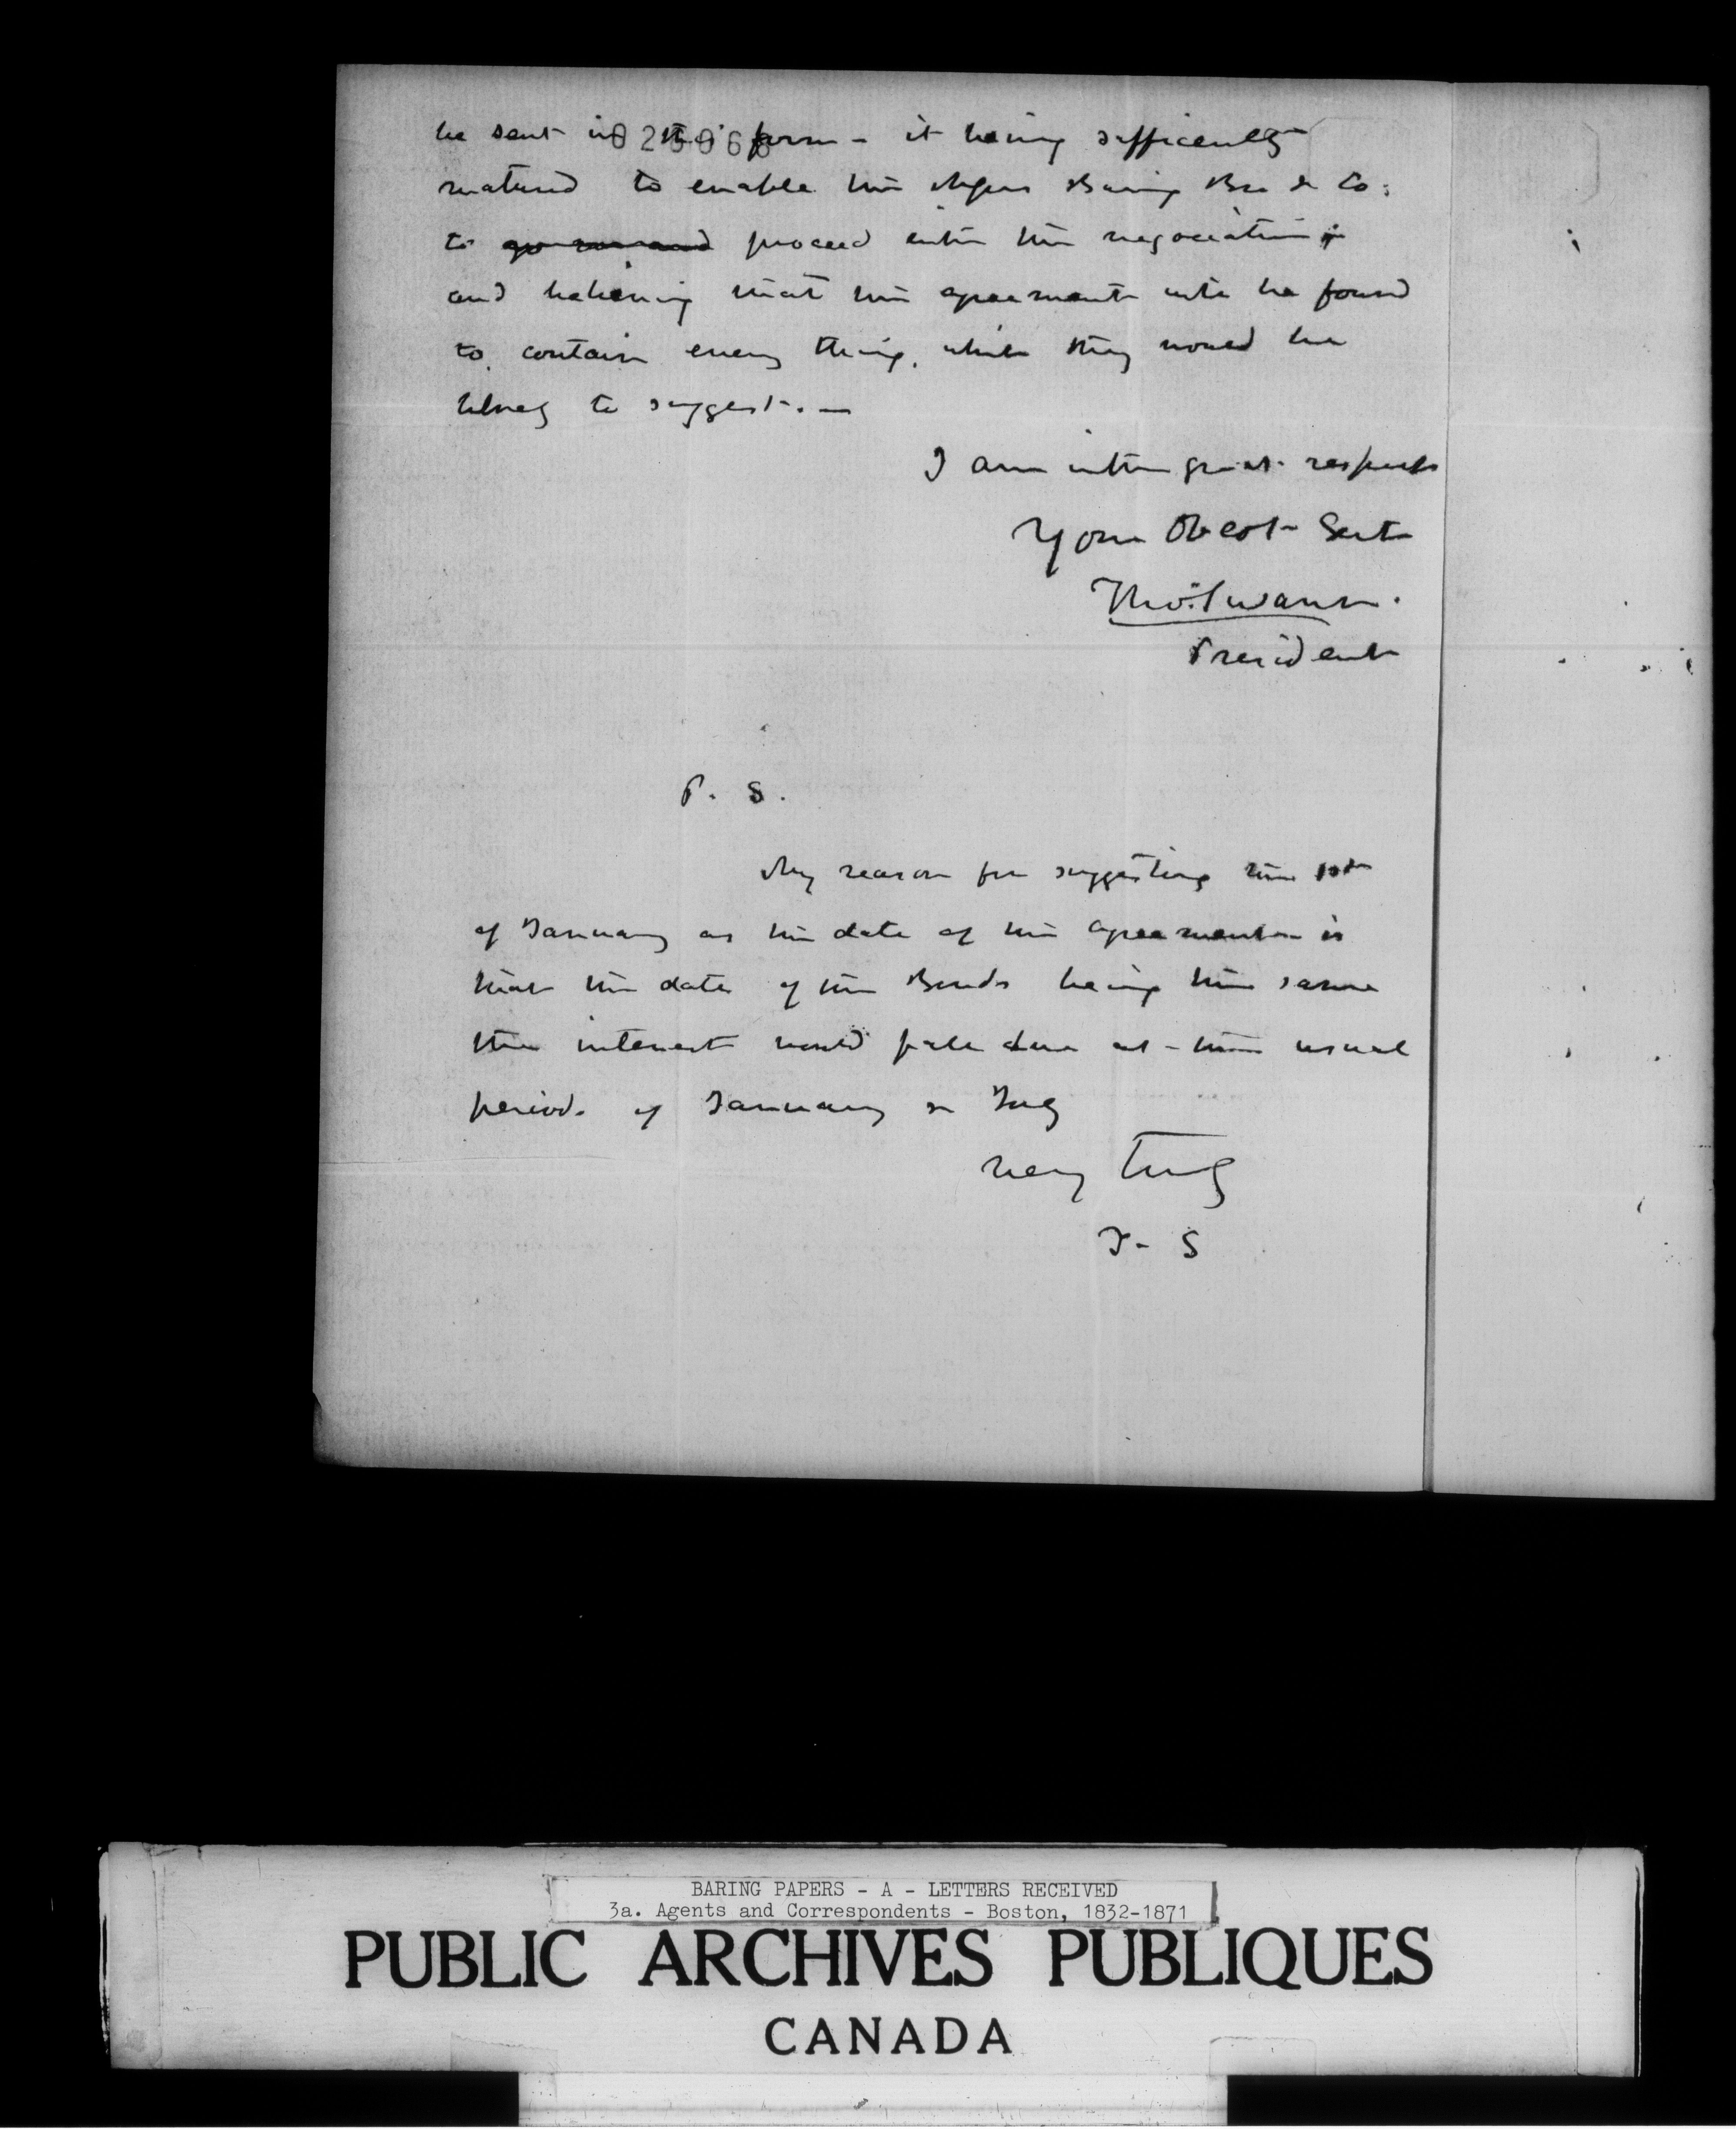 be sent in this form - it being sufficiently
025968
matured to enable the Messrs Baring Bro & Co:
to proceed with the negociation;
and believing that the agreement will be found
to contain every thing, which they would be
likely to suggest. -
I am with great respect
Your Obedt Sevt
Tho: Swann.
President
P. S.
My reason for suggesting the 1st
of January as the date of the agreement is
that the date of the Bonds being the same
the interest would fall due at the usual
periods of January & July
Very Truly
T - S
BARING PAPERS - A - LETTERS RECEIVED
3a. Agents and Correspondents - Boston, 1832-1871
PUBLIC ARCHIVES PUBLIQUES
CANADA